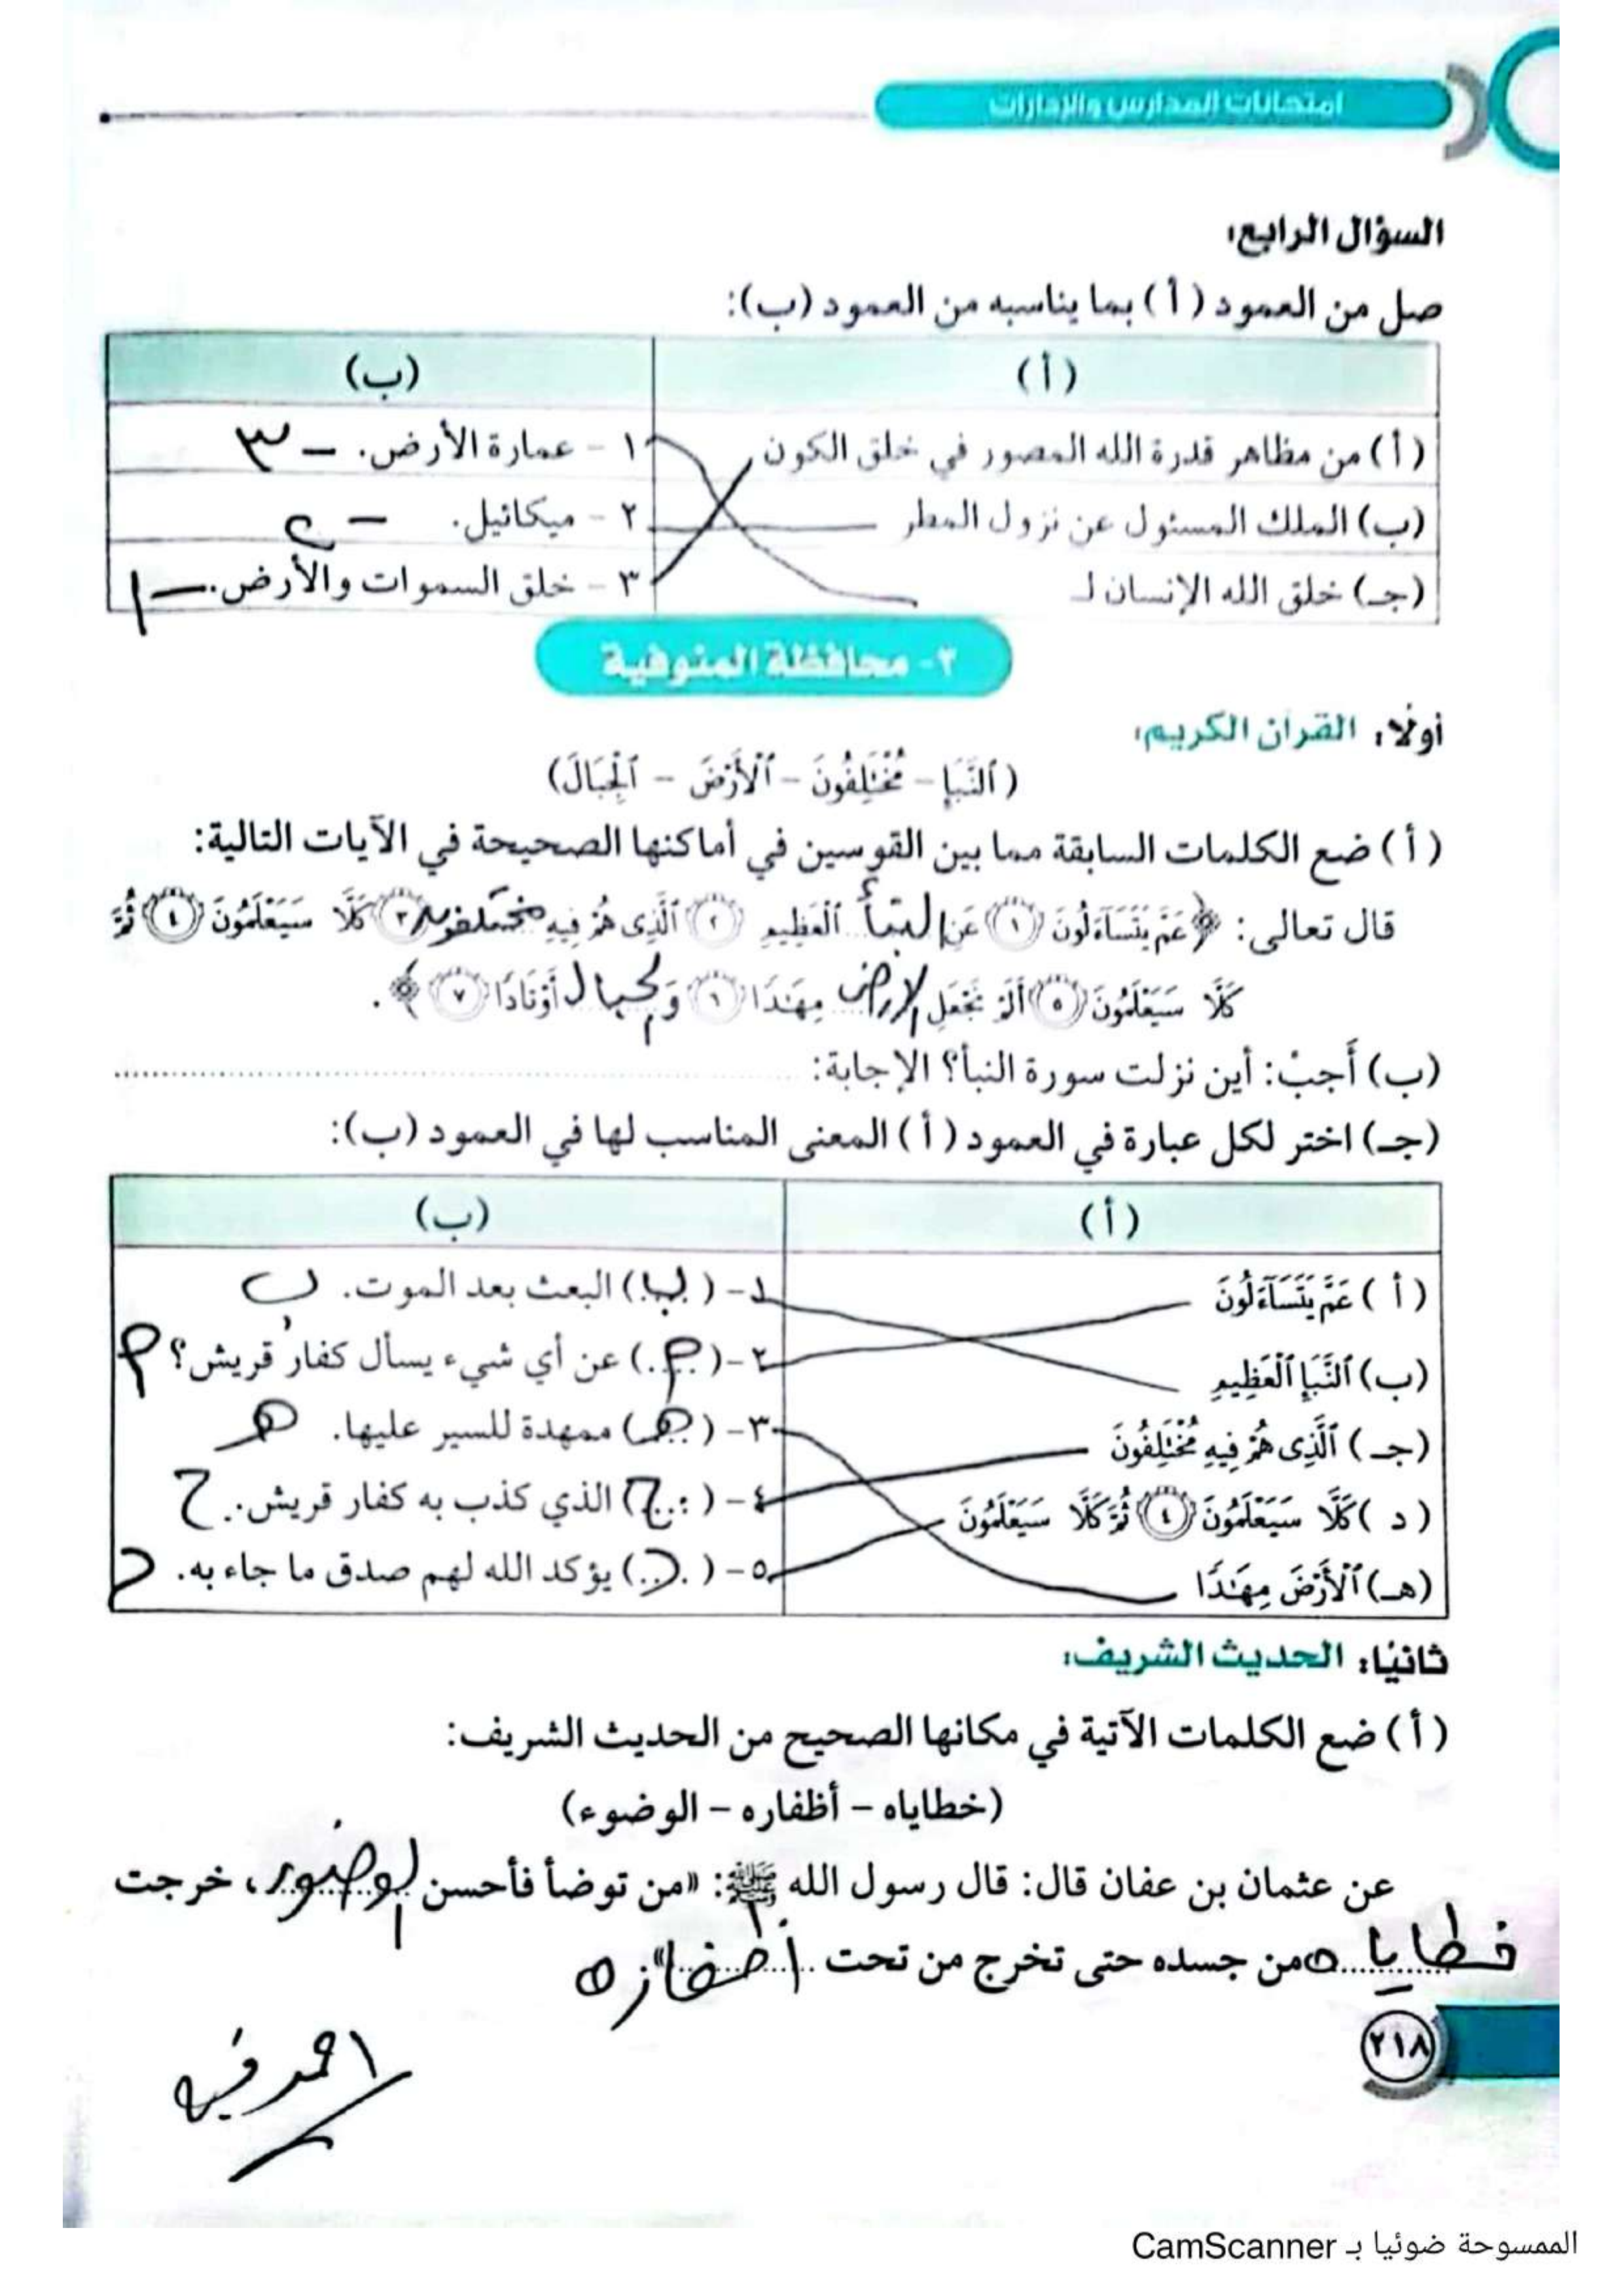 امتحانات المدارس والإدارات
السؤال الرابع:
صل من العمود (أ) بما يناسبه من العمود (ب):
(أ) (ب)
(أ) من مظاهر قدرة الله المصور في خلق الكون ١ - عمارة الأرض. - ٣
(ب) الملك المسئول عن نزول المطر ٢ - ميكائيل. - ٢
(جـ) خلق الله الإنسان لـ ٣ - خلق السموات والأرض. - ١
٢- محافظة المنوفية
أولًا: القرآن الكريم:
(ٱلنَّبَإِ - مُخْتَلِفُونَ - ٱلْأَرْضَ - ٱلْجِبَالَ)
(أ) ضع الكلمات السابقة مما بين القوسين في أماكنها الصحيحة في الآيات التالية:
قال تعالى: ﴿عَمَّ يَتَسَآءَلُونَ ١ عَنِ النبأ ٱلْعَظِيمِ ٢ ٱلَّذِى هُمْ فِيهِ مختلفون ٣ كَلَّا سَيَعْلَمُونَ ٤ ثُمَّ
كَلَّا سَيَعْلَمُونَ ٥ أَلَمْ نَجْعَلِ الأرض مِهَـٰدًا ٦ وَ الجبال أَوْتَادًا ٧﴾.
(ب) أَجبْ: أين نزلت سورة النبأ؟ الإجابة: ..............................
(جـ) اختر لكل عبارة في العمود (أ) المعنى المناسب لها في العمود (ب):
(أ) (ب)
(أ) عَمَّ يَتَسَآءَلُونَ ١- (ب) البعث بعد الموت. ب
(ب) ٱلنَّبَإِ ٱلْعَظِيمِ ٢- (م) عن أي شيء يسأل كفار قريش؟ م
(جـ) ٱلَّذِى هُمْ فِيهِ مُخْتَلِفُونَ ٣- (هـ) ممهدة للسير عليها. هـ
(د) كَلَّا سَيَعْلَمُونَ ٤ ثُمَّ كَلَّا سَيَعْلَمُونَ ٤- (ج) الذي كذب به كفار قريش. ج
(هـ) ٱلْأَرْضَ مِهَـٰدًا ٥- (د) يؤكد الله لهم صدق ما جاء به. د
ثانيًا: الحديث الشريف:
(أ) ضع الكلمات الآتية في مكانها الصحيح من الحديث الشريف:
(خطاياه - أظفاره - الوضوء)
عن عثمان بن عفان قال: قال رسول الله ﷺ: «من توضأ فأحسن الوضوء، خرجت
خطاياه من جسده حتى تخرج من تحت أظفاره»
٢١٨
الممسوحة ضوئيا بـ CamScanner